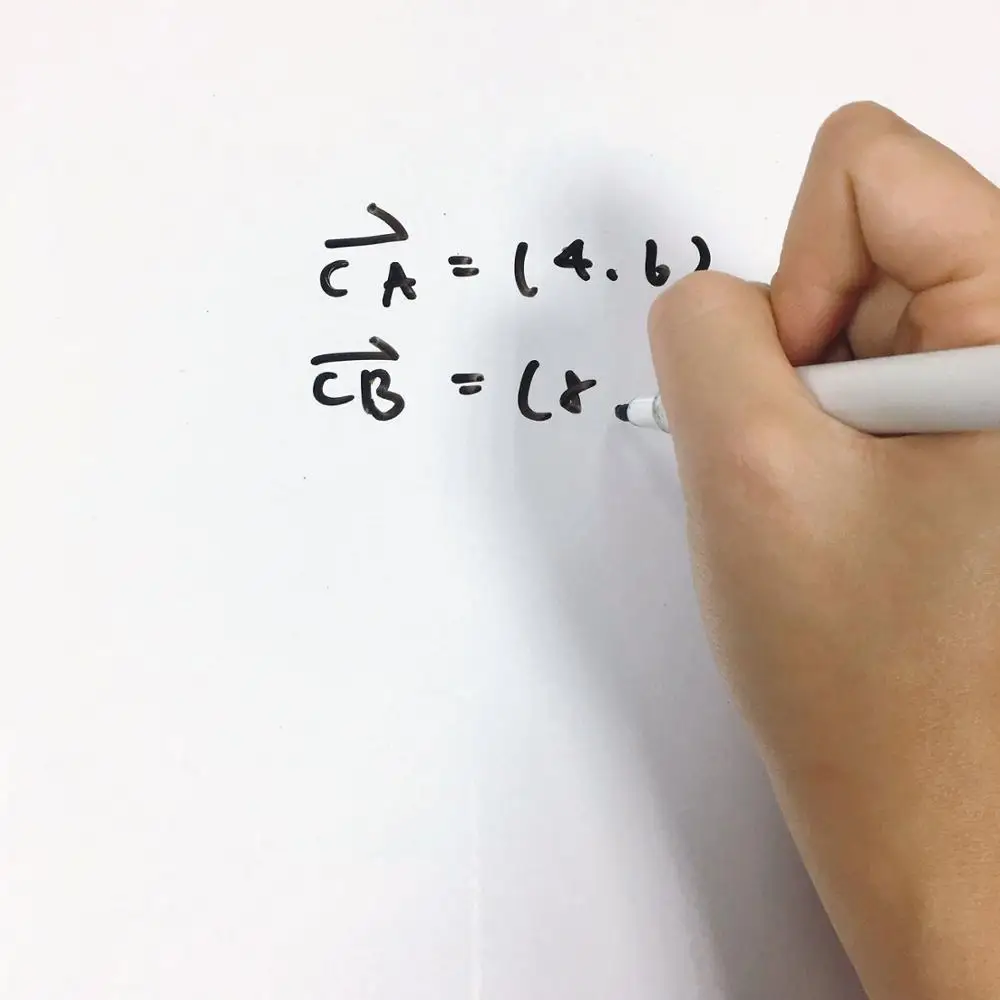 CA = (4. 6)
CB = (8